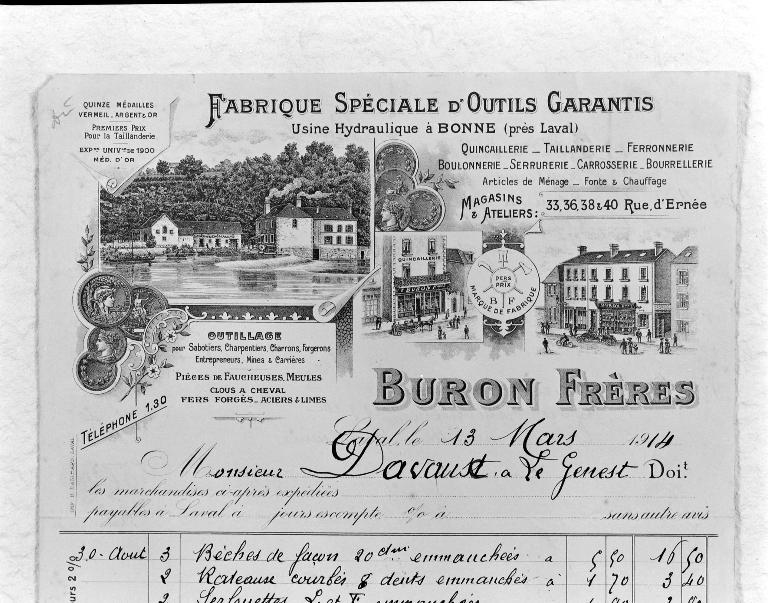 QUINZE MÉDAILLES
VERMEIL, ARGENT & OR
PREMIERS PRIX
Pour la Taillanderie
EXPon UNIVlle DE 1900
MÉD. D'OR
FABRIQUE SPÉCIALE D'OUTILS GARANTIS
Usine Hydraulique à BONNE (près Laval)
QUINCAILLERIE _ TAILLANDERIE _ FERRONNERIE
BOULONNERIE _ SERRURERIE _ CARROSSERIE _ BOURRELLERIE
Articles de Ménage _ Fonte & Chauffage
MAGASINS & ATELIERS: 33, 36, 38 & 40 Rue d'Ernée
QUINCAILLERIE
PERS PRIX
B F
MARQUE DE FABRIQUE
OUTILLAGE
pour Sabotiers, Charpentiers, Charrons, Forgerons
Entrepreneurs, Mines & Carrières
PIÈCES DE FAUCHEUSES, MEULES
CLOUS A CHEVAL
FERS FORGÉS _ ACIERS & LIMES
BURON FRÈRES
TÉLÉPHONE 1.30
Laval, le 13 Mars 1914
Monsieur Davaust, a Le Genest Doit
les marchandises ci-après expédiées
payables à Laval à jours escompte % à sans autre avis
30 Aout 3 Bêches de façon 20 cdm emmanchées a 5 50 16 50
2 Rateaux courbés 8 dents emmanchés à 1 70 3 40